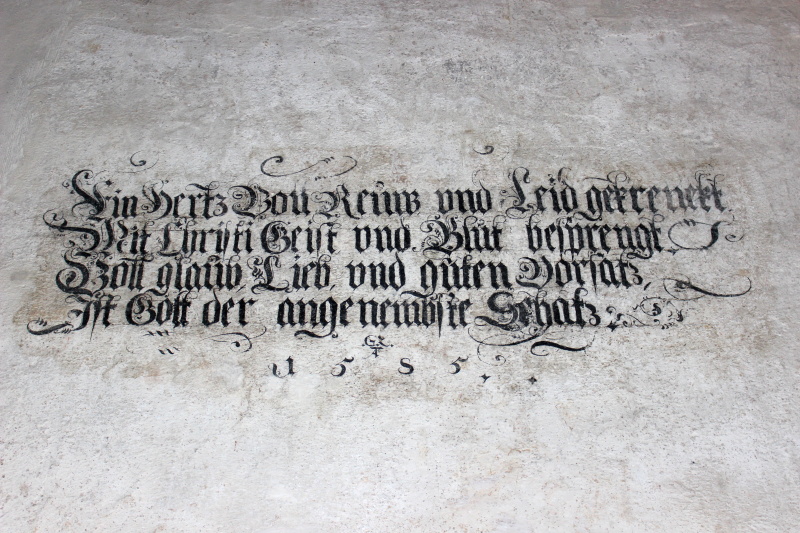 Ein Hertz Voll Reüw vnd Leid gekrenckt,
Mit Christi Geist vnd Blüt besprengt,
Voll glaüb, Lieb, vnd güten Vorsatz,
Ist Gott der angenembste Schatz.
1585